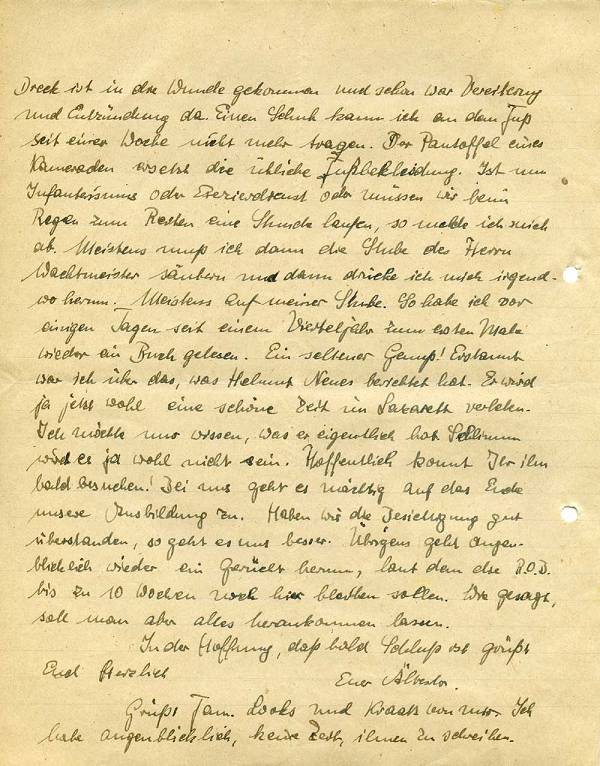 Dreck ist in die Wunde gekommen und schon war Vereiterung
und Entzündung da. Einen Schuh kann ich an dem Fuß
seit einer Woche nicht mehr tragen. Der Pantoffel eines
Kameraden ersetzt die übliche Fußbekleidung. Ist nun
Infanterismus oder Exerzierdienst oder müssen wir beim
Regen zum Reiten eine Stunde laufen, so melde ich mich
ab. Meistens muß ich dann die Stube des Herrn
Wachtmeister säubern und dann drücke ich mich irgend-
wo herum. Meistens auf meiner Stube. So habe ich vor
einigen Tagen seit einem Vierteljahr zum ersten Male
wieder ein Buch gelesen. Ein seltener Genuß! Erstaunt
war ich über das, was Helmut Neues berichtet hat. Er wird
ja jetzt wohl eine schöne Zeit im Lazarett verleben.
Ich möchte nur wissen, was er eigentlich hat. Schlimm
wird es ja wohl nicht sein. Hoffentlich könnt Ihr ihn
bald besuchen! Bei uns geht es mächtig auf das Ende
unsere Ausbildung zu. Haben wir die Besichtigung gut
überstanden, so geht es uns besser. Übrigens geht augen-
blicklich wieder ein Gerücht herum, laut dem die R.O.B.
bis zu 10 Wochen noch hier bleiben sollen. Wie gesagt,
soll man aber alles herankommen lassen.
In der Hoffnung, daß bald Schluß ist grüßt
Euch herzlich
Euer
Grüßt Fam. und von mir. Ich
habe augenblicklich, keine Zeit, ihnen zu schreiben.